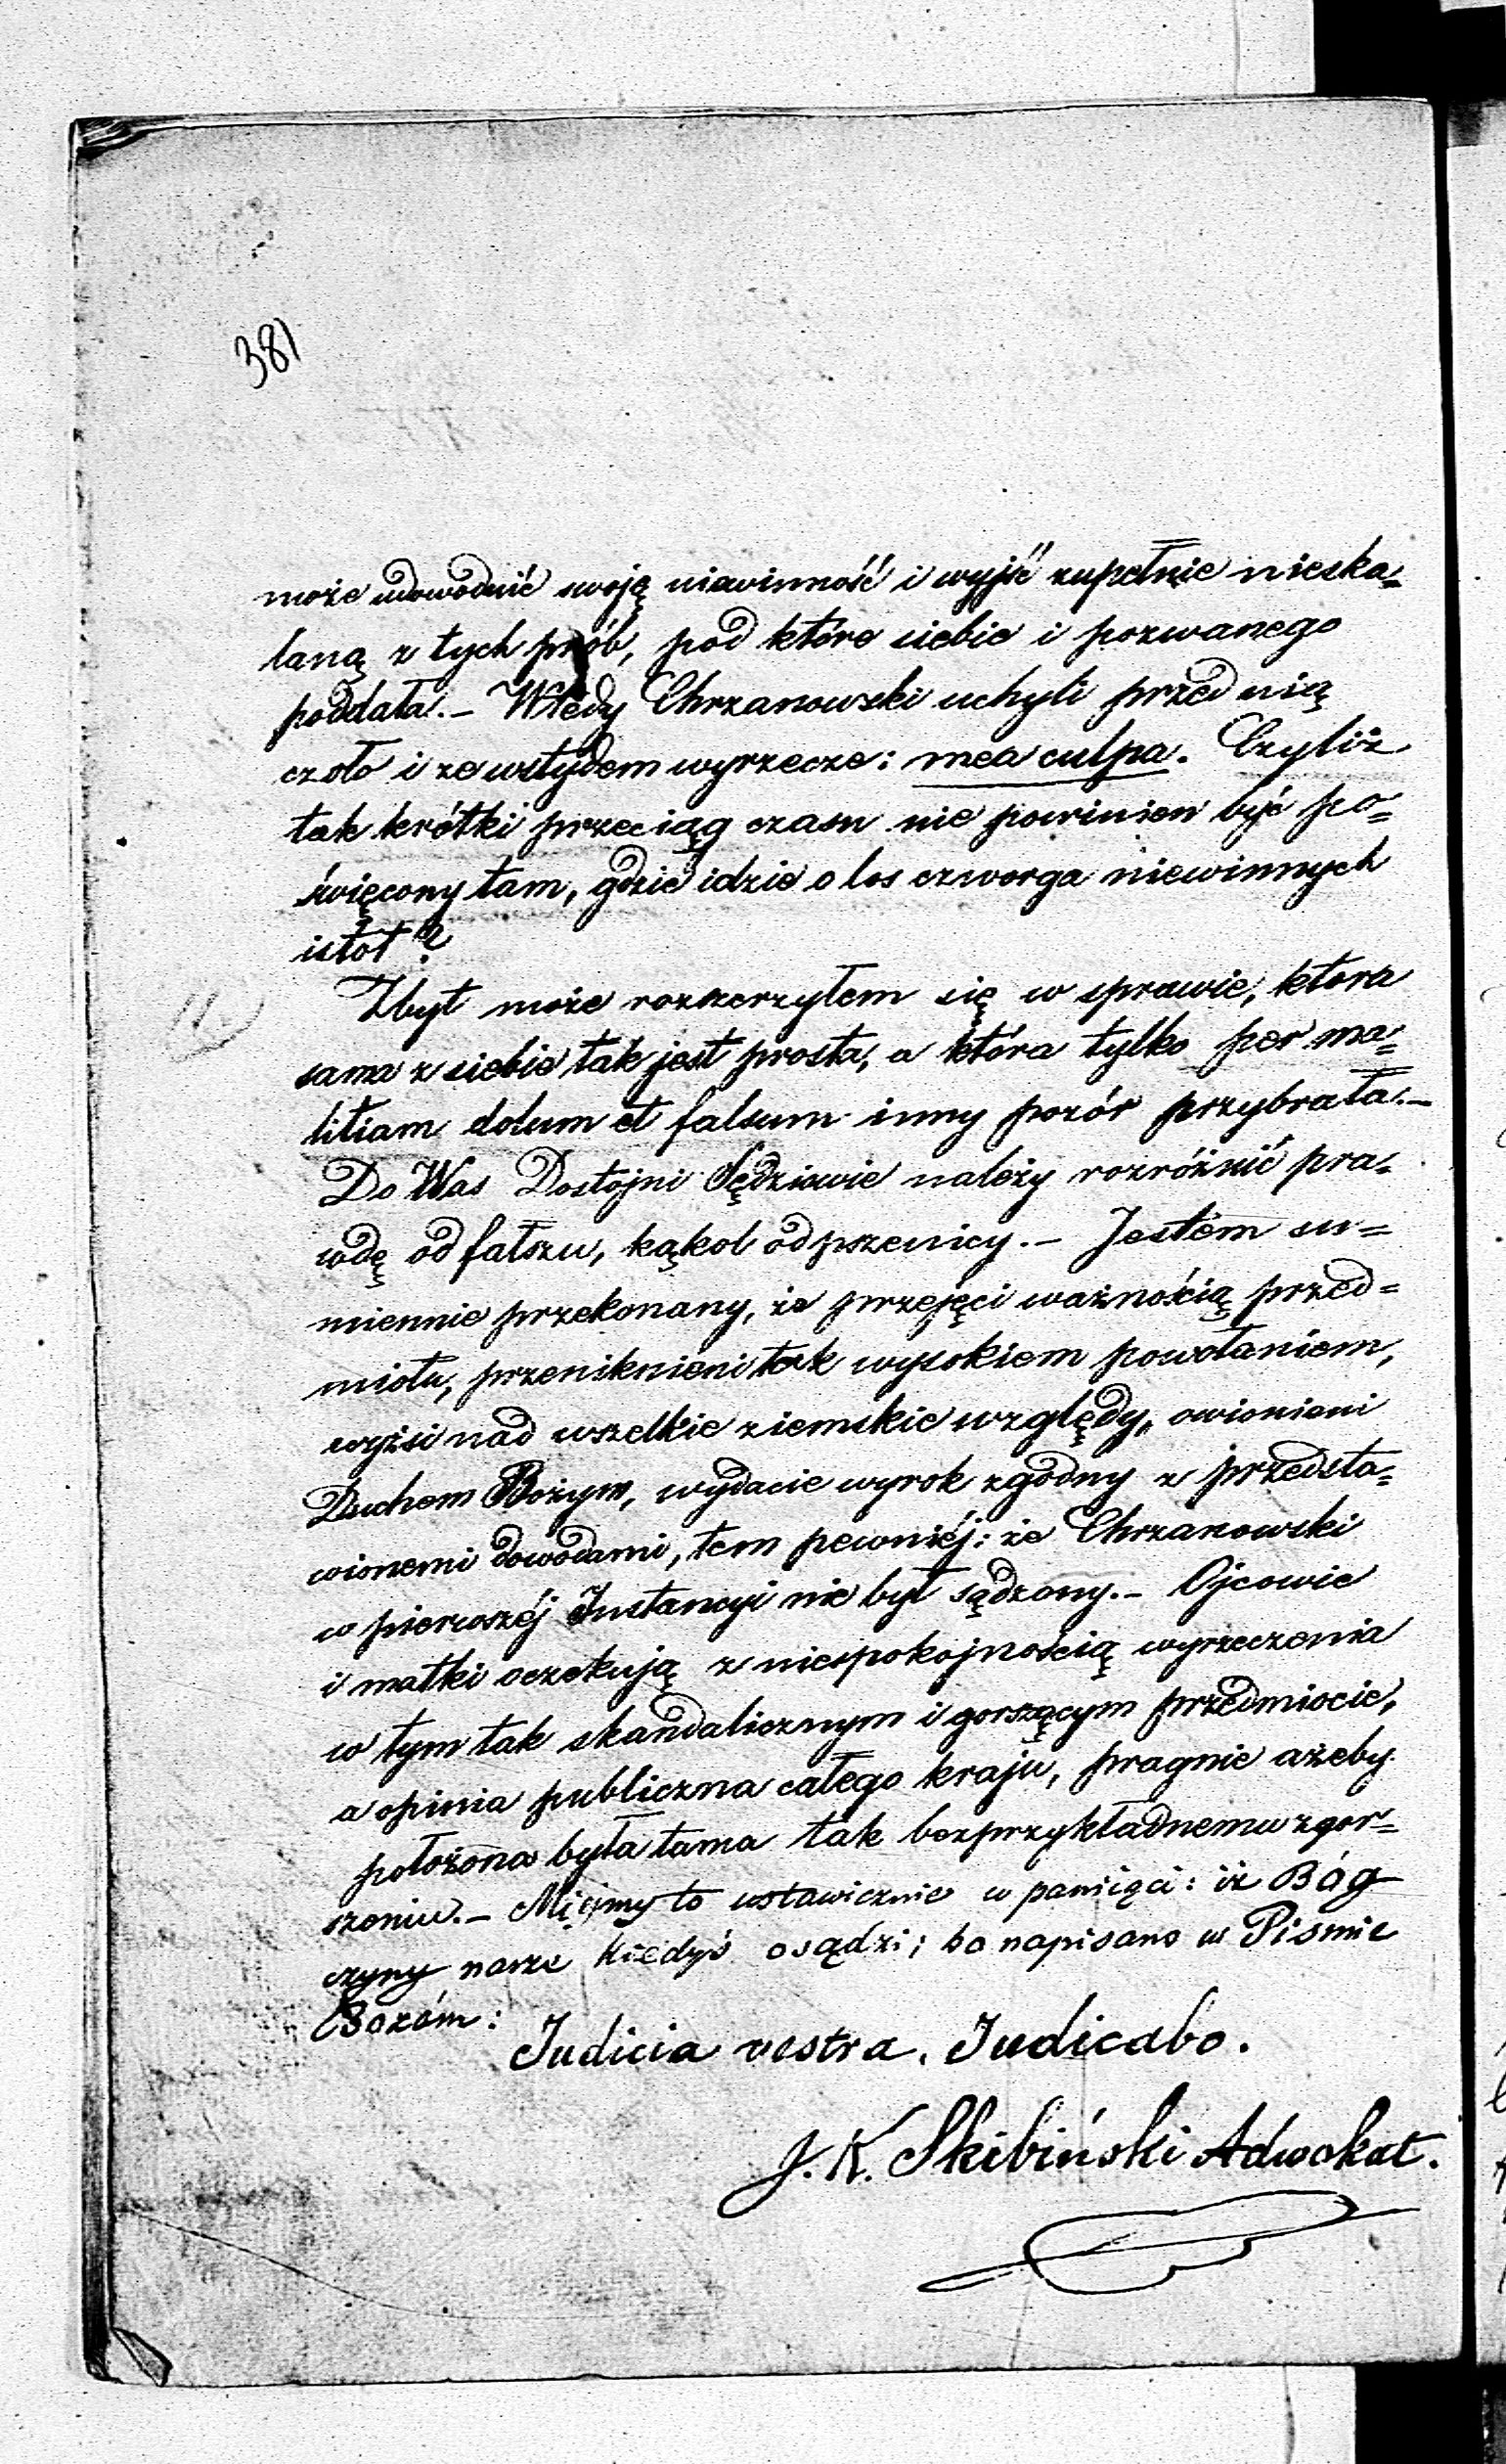 381
może udowodnić swoję niewinność i wyjść zupełnie nieska=
laną z tych prób, pod które siebie i pozwanego
poddała. – Wtedy Chrzanowski uchyli przed nią
czoło i ze wstydem wyrzecze: mea culpa. Czyliż
tak krótki przeciąg czasu nie powinien być po=
święcony tam, gdzie idzie o los czworga niewinnych
istot?
Zbyt może rozszerzyłem się w sprawie, która
sama z siebie tak jest prosta, a która tylko per ma=
litiam dolum et falsum inny pozór przybrała. –
Do Was Dostojni Sędziowie należy rozróżnić pra=
wdę od fałszu, kąkol od pszenicy. – Jestem su=
miennie przekonany, że przejęci ważnością przed=
miotu, przeniknieni tak wysokiem powołaniem,
wyżsi nad wszelkie ziemskie względy, owionieni
Duchem Bożym, wydacie wyrok zgodny z przedsta=
wionemi dowodami, tem pewniéj: że Chrzanowski
w pierwszéj Instancyi nie był sądzony. – Ojcowie
i matki oczekują z niespokojnością wyrzeczenia
w tym tak skandalicznym i gorszącym przedmiocie,
a opinia publiczna całego kraju, pragnie ażeby
położona była tama tak bezprzykładnemu zgor=
szeniu. – Miejmy to ustawicznie w pamięci: iż Bóg
czyny nasze kiedyś osądzi; bo napisano w Pismie
Bożóm:
Judicia vestra, Judicabo.
J. K. Skibiński Adwokat.